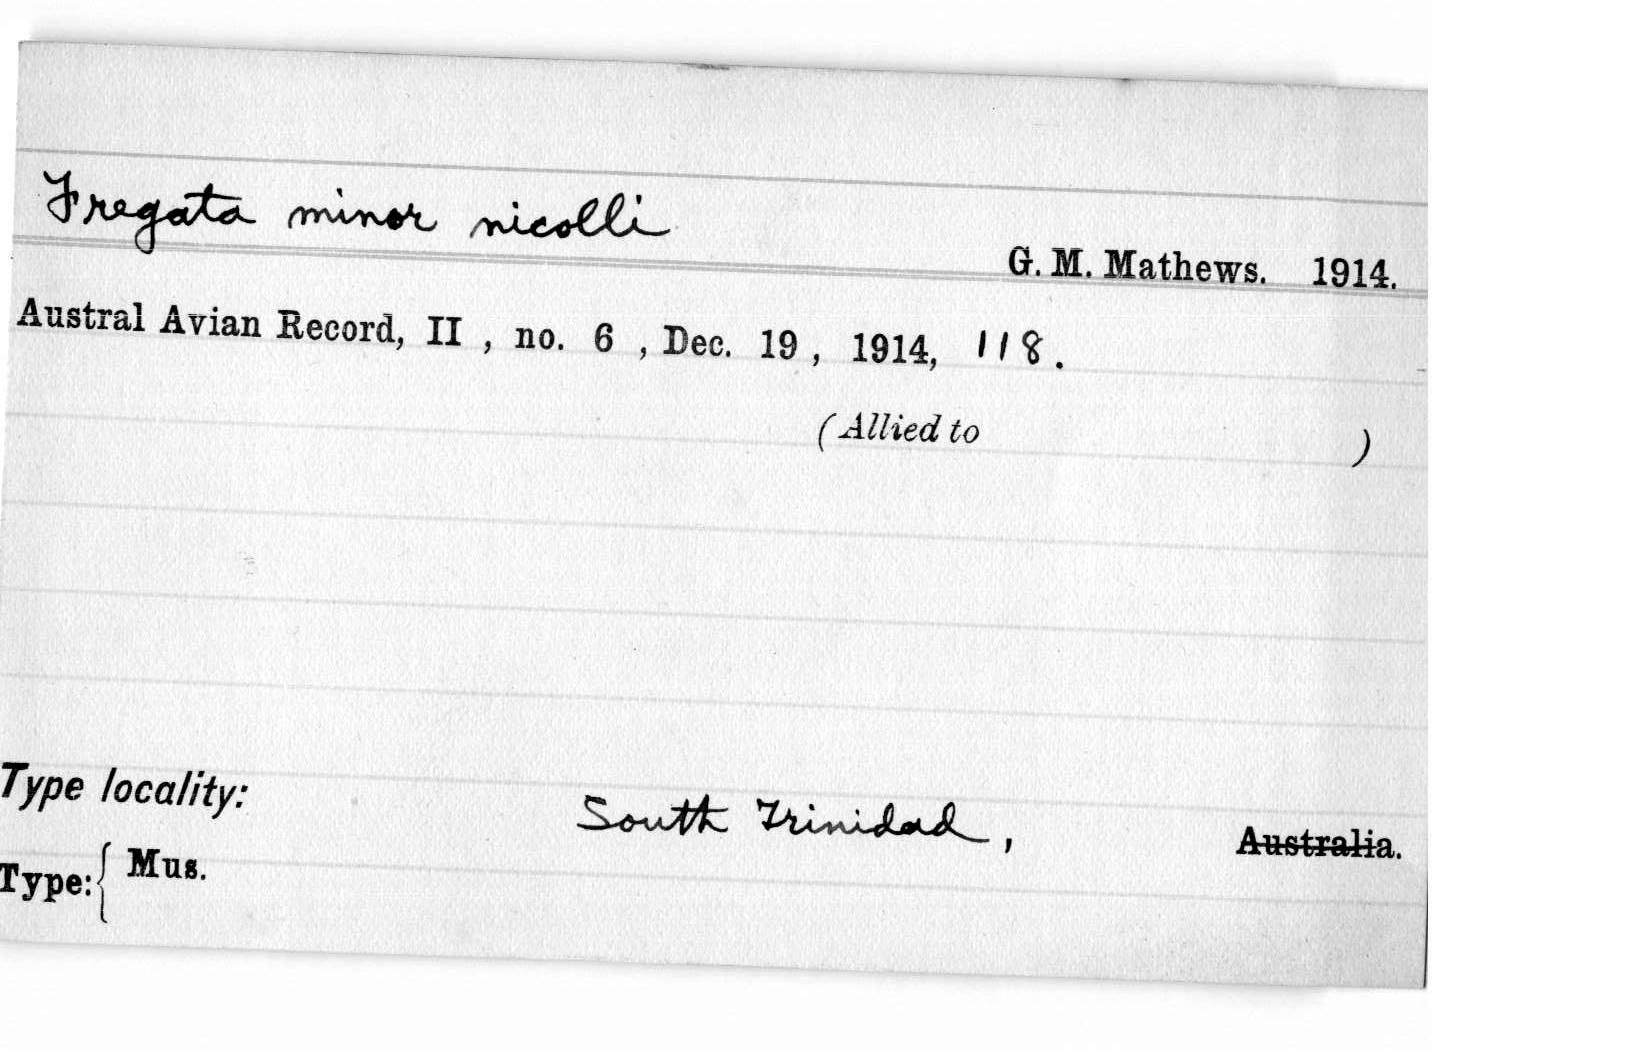 Fregata minor nicolli
G. M. Mathews. 1914.
Austral Avian Record, II , no. 6 , Dec. 19 , 1914, 118.
(Allied to )
Type locality:
South Trinidad , Australia.
Type: { Mus.